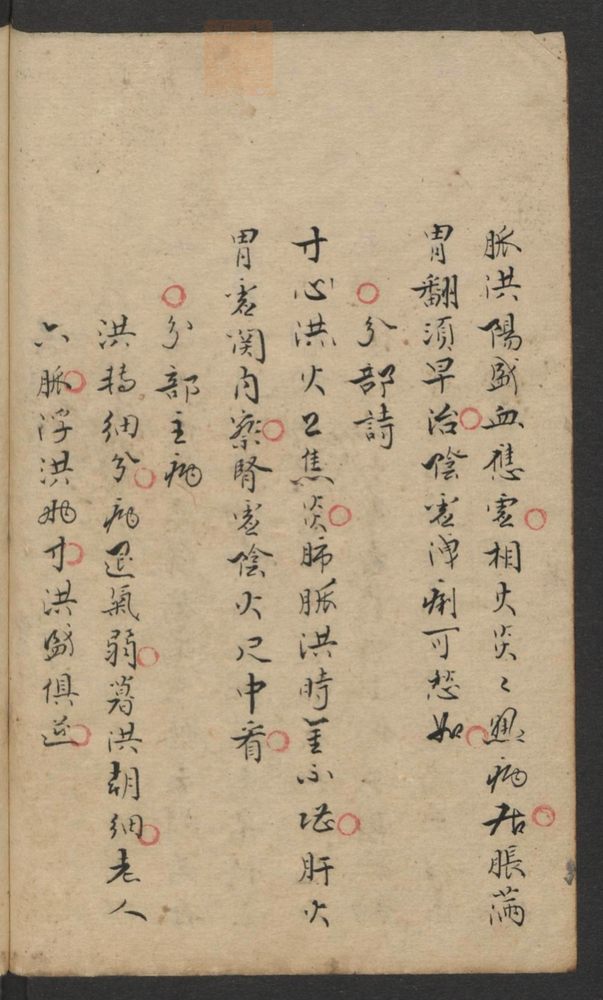 脈洪陽盛血應虛相火炎〻熱病居脹滿
胃翻須早治陰虛洩痢可愁如
○分部詩
寸心洪火上焦炎肺脈洪時金不堪肝火
胃虛関内察腎虛陰火尺中看
○分部主病
洪轉細分病退氣弱暮洪朝細老人
六脈浮洪寸洪盛俱逆